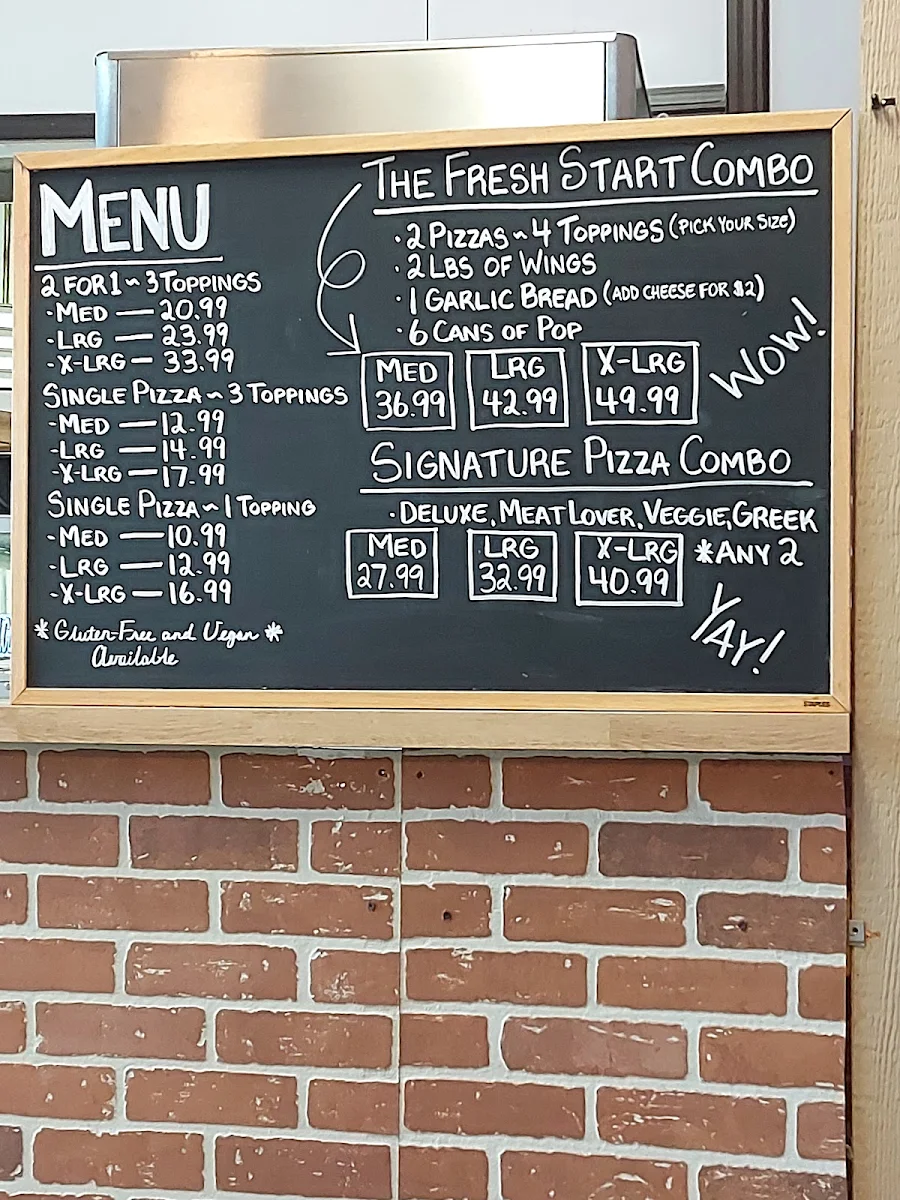 MENU
2 FOR 1 ~ 3 TOPPINGS
-MED — 20.99
-LRG — 23.99
-X-LRG — 33.99
SINGLE PIZZA ~ 3 TOPPINGS
-MED — 12.99
-LRG — 14.99
-X-LRG — 17.99
SINGLE PIZZA ~ 1 TOPPING
-MED — 10.99
-LRG — 12.99
-X-LRG — 16.99
* Gluten-Free and Vegan *
Available
THE FRESH START COMBO
· 2 PIZZAS ~ 4 TOPPINGS (PICK YOUR SIZE)
· 2 LBS OF WINGS
· 1 GARLIC BREAD (ADD CHEESE FOR $2)
· 6 CANS OF POP
MED 36.99
LRG 42.99
X-LRG 49.99
WOW!
SIGNATURE PIZZA COMBO
· DELUXE, MEAT LOVER, VEGGIE, GREEK
MED 27.99
LRG 32.99
X-LRG 40.99
*ANY 2
YAY!
STAPLES